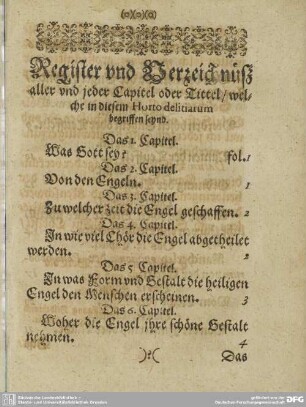 Register vnd Verzeichnüß
aller vnd jeder Capitel oder Tittel/ wel-
che in diesem Horto delitiarum
begriffen seynd.
Das 1. Capitel.
Was Gott sey? fol. 1
Das 2. Capitel.
Von den Engeln. 1
Das 3. Capitel.
Zu welcher zeit die Engel geschaffen. 2
Das 4. Capitel.
In wie viel Chör die Engel abgetheilet
werden. 2
Das 5. Capitel.
In was Form vnd Gestalt die heiligen
Engel den Menschen erscheinen. 3
Das 6. Capitel.
Woher die Engel jhre schöne Gestalt
nehmen. 4
Das
DFG